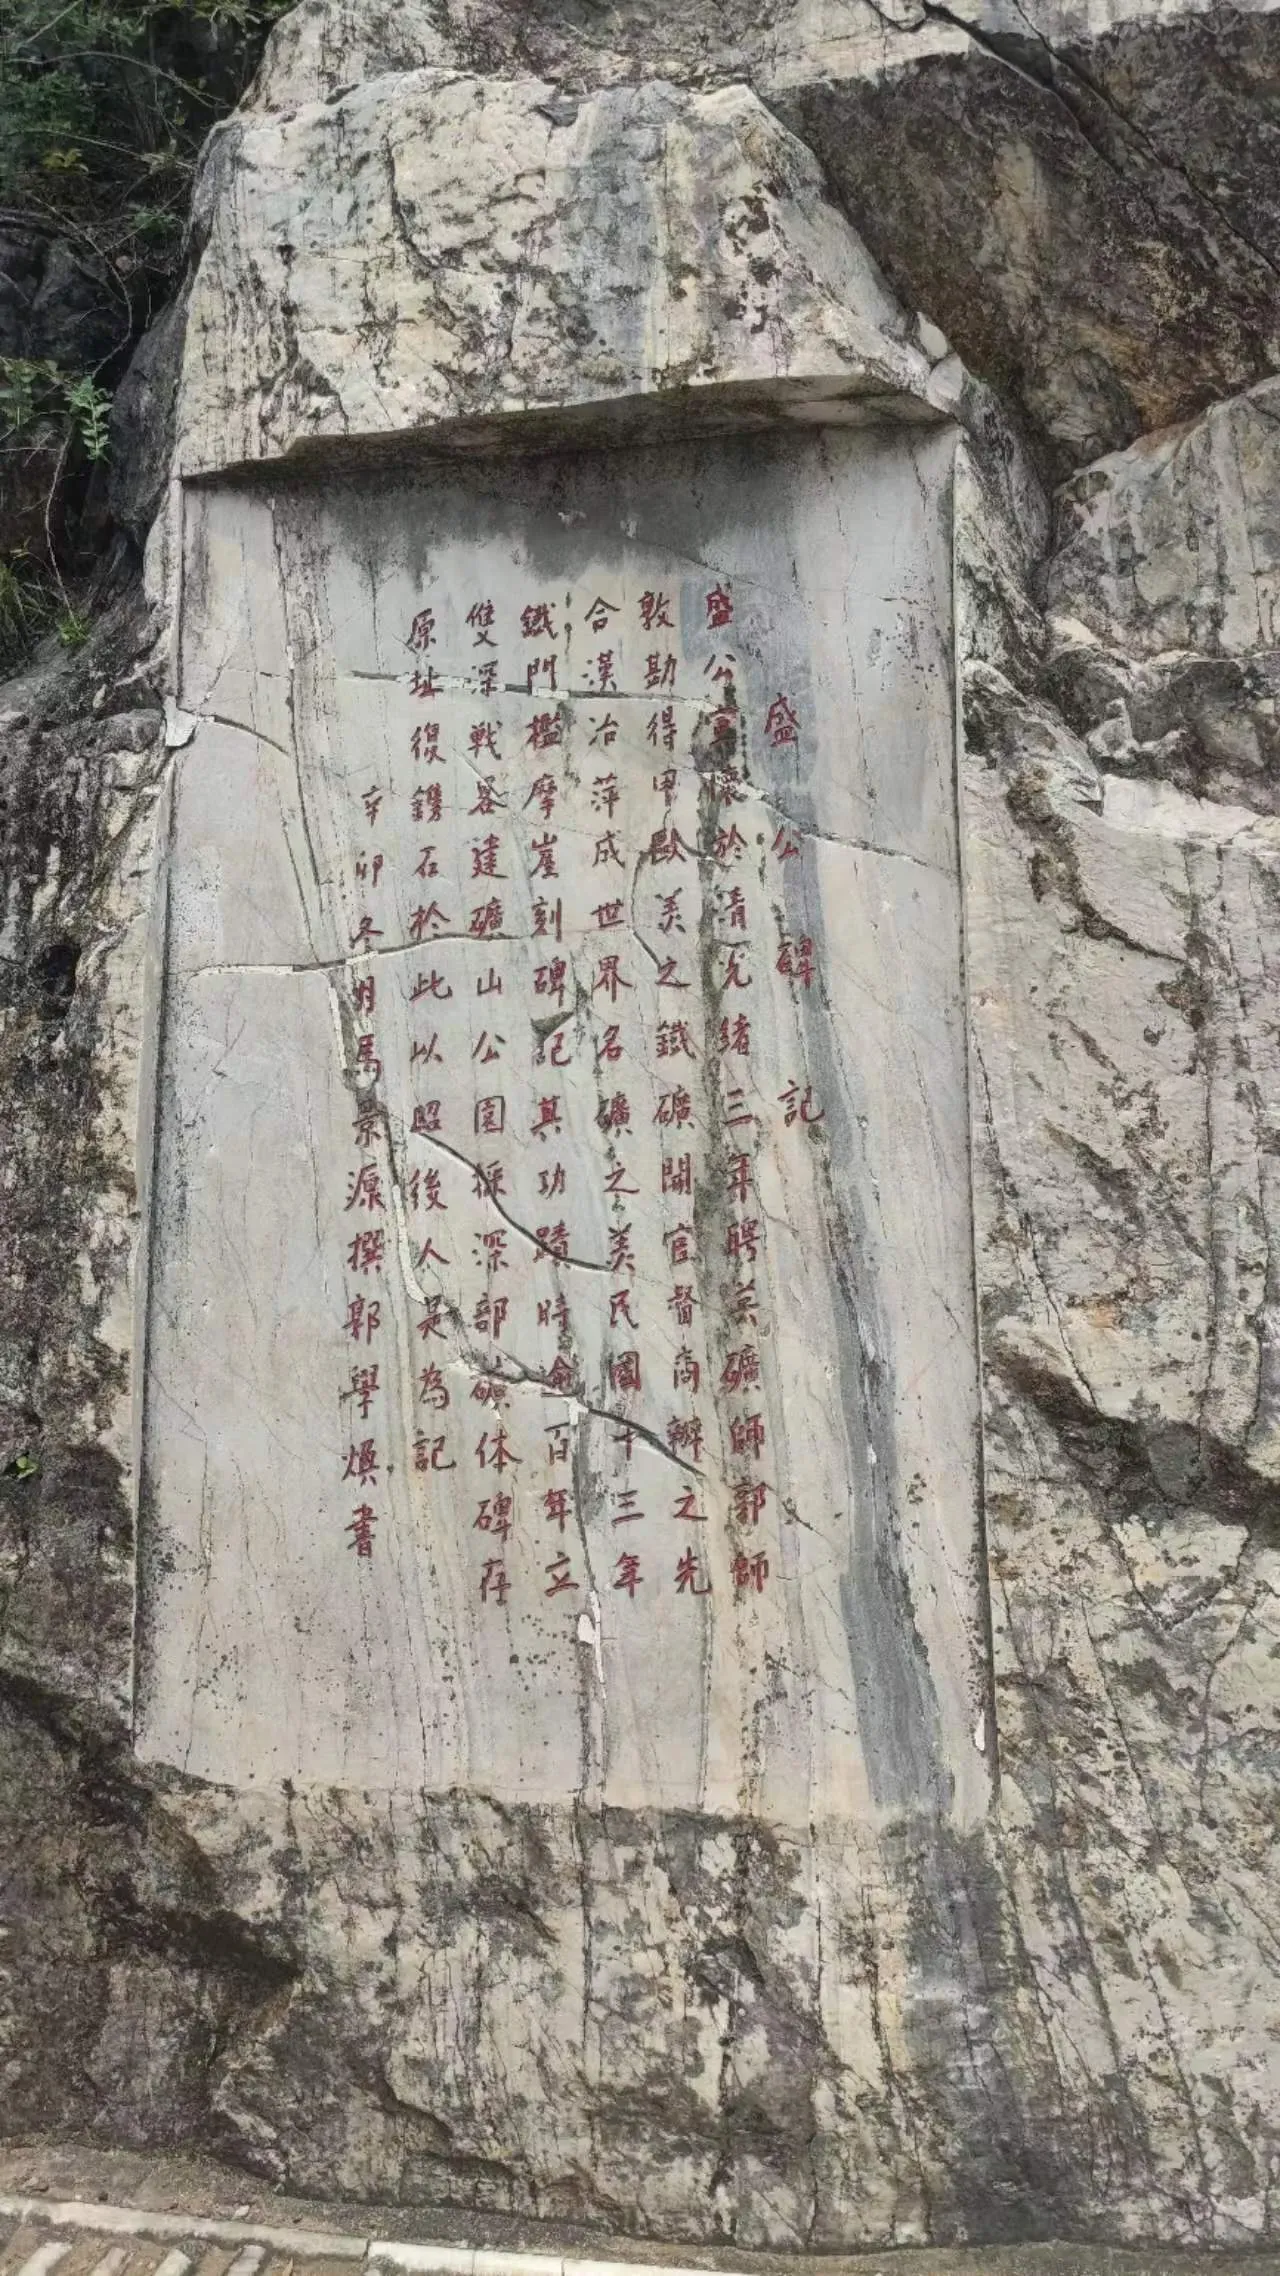 盛公碑記
盛公宣懷於清光緒三年聘英礦師郭師
敦勘得甲歐美之鐵礦開官督商辦之先
合漢冶萍成世界名礦之美民國十三年
鐵門檻摩崖刻碑記其功蹟時逾百年立
雙深戰畧建礦山公園採深部礦体碑存
原址復鐫石於此以昭後人是為記
辛卯冬月馬景源撰郭學煥書